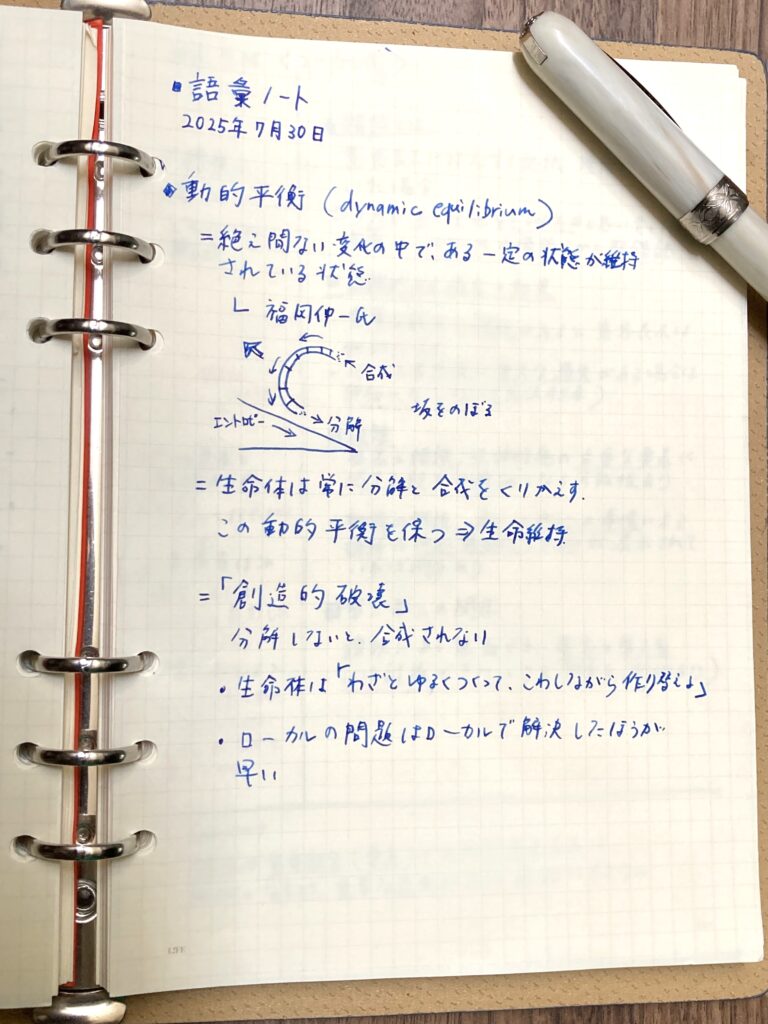 ▪ 語彙ノート
2025年7月30日
◆ 動的平衡 (dynamic equilibrium)
= 絶え間ない変化の中で、ある一定の状態が維持
されている状態
└ 福岡伸一氏
合成
坂をのぼる
エントロピー
分解
= 生命体は常に分解と合成をくりかえす.
この動的平衡を保つ ⇒ 生命維持.
= 「創造的破壊」
分解しないと、合成されない
・生命体は「わざとゆるくつくって、こわしながら作り替える」
・ローカルの問題はローカルで解決したほうが
早い
LIFE